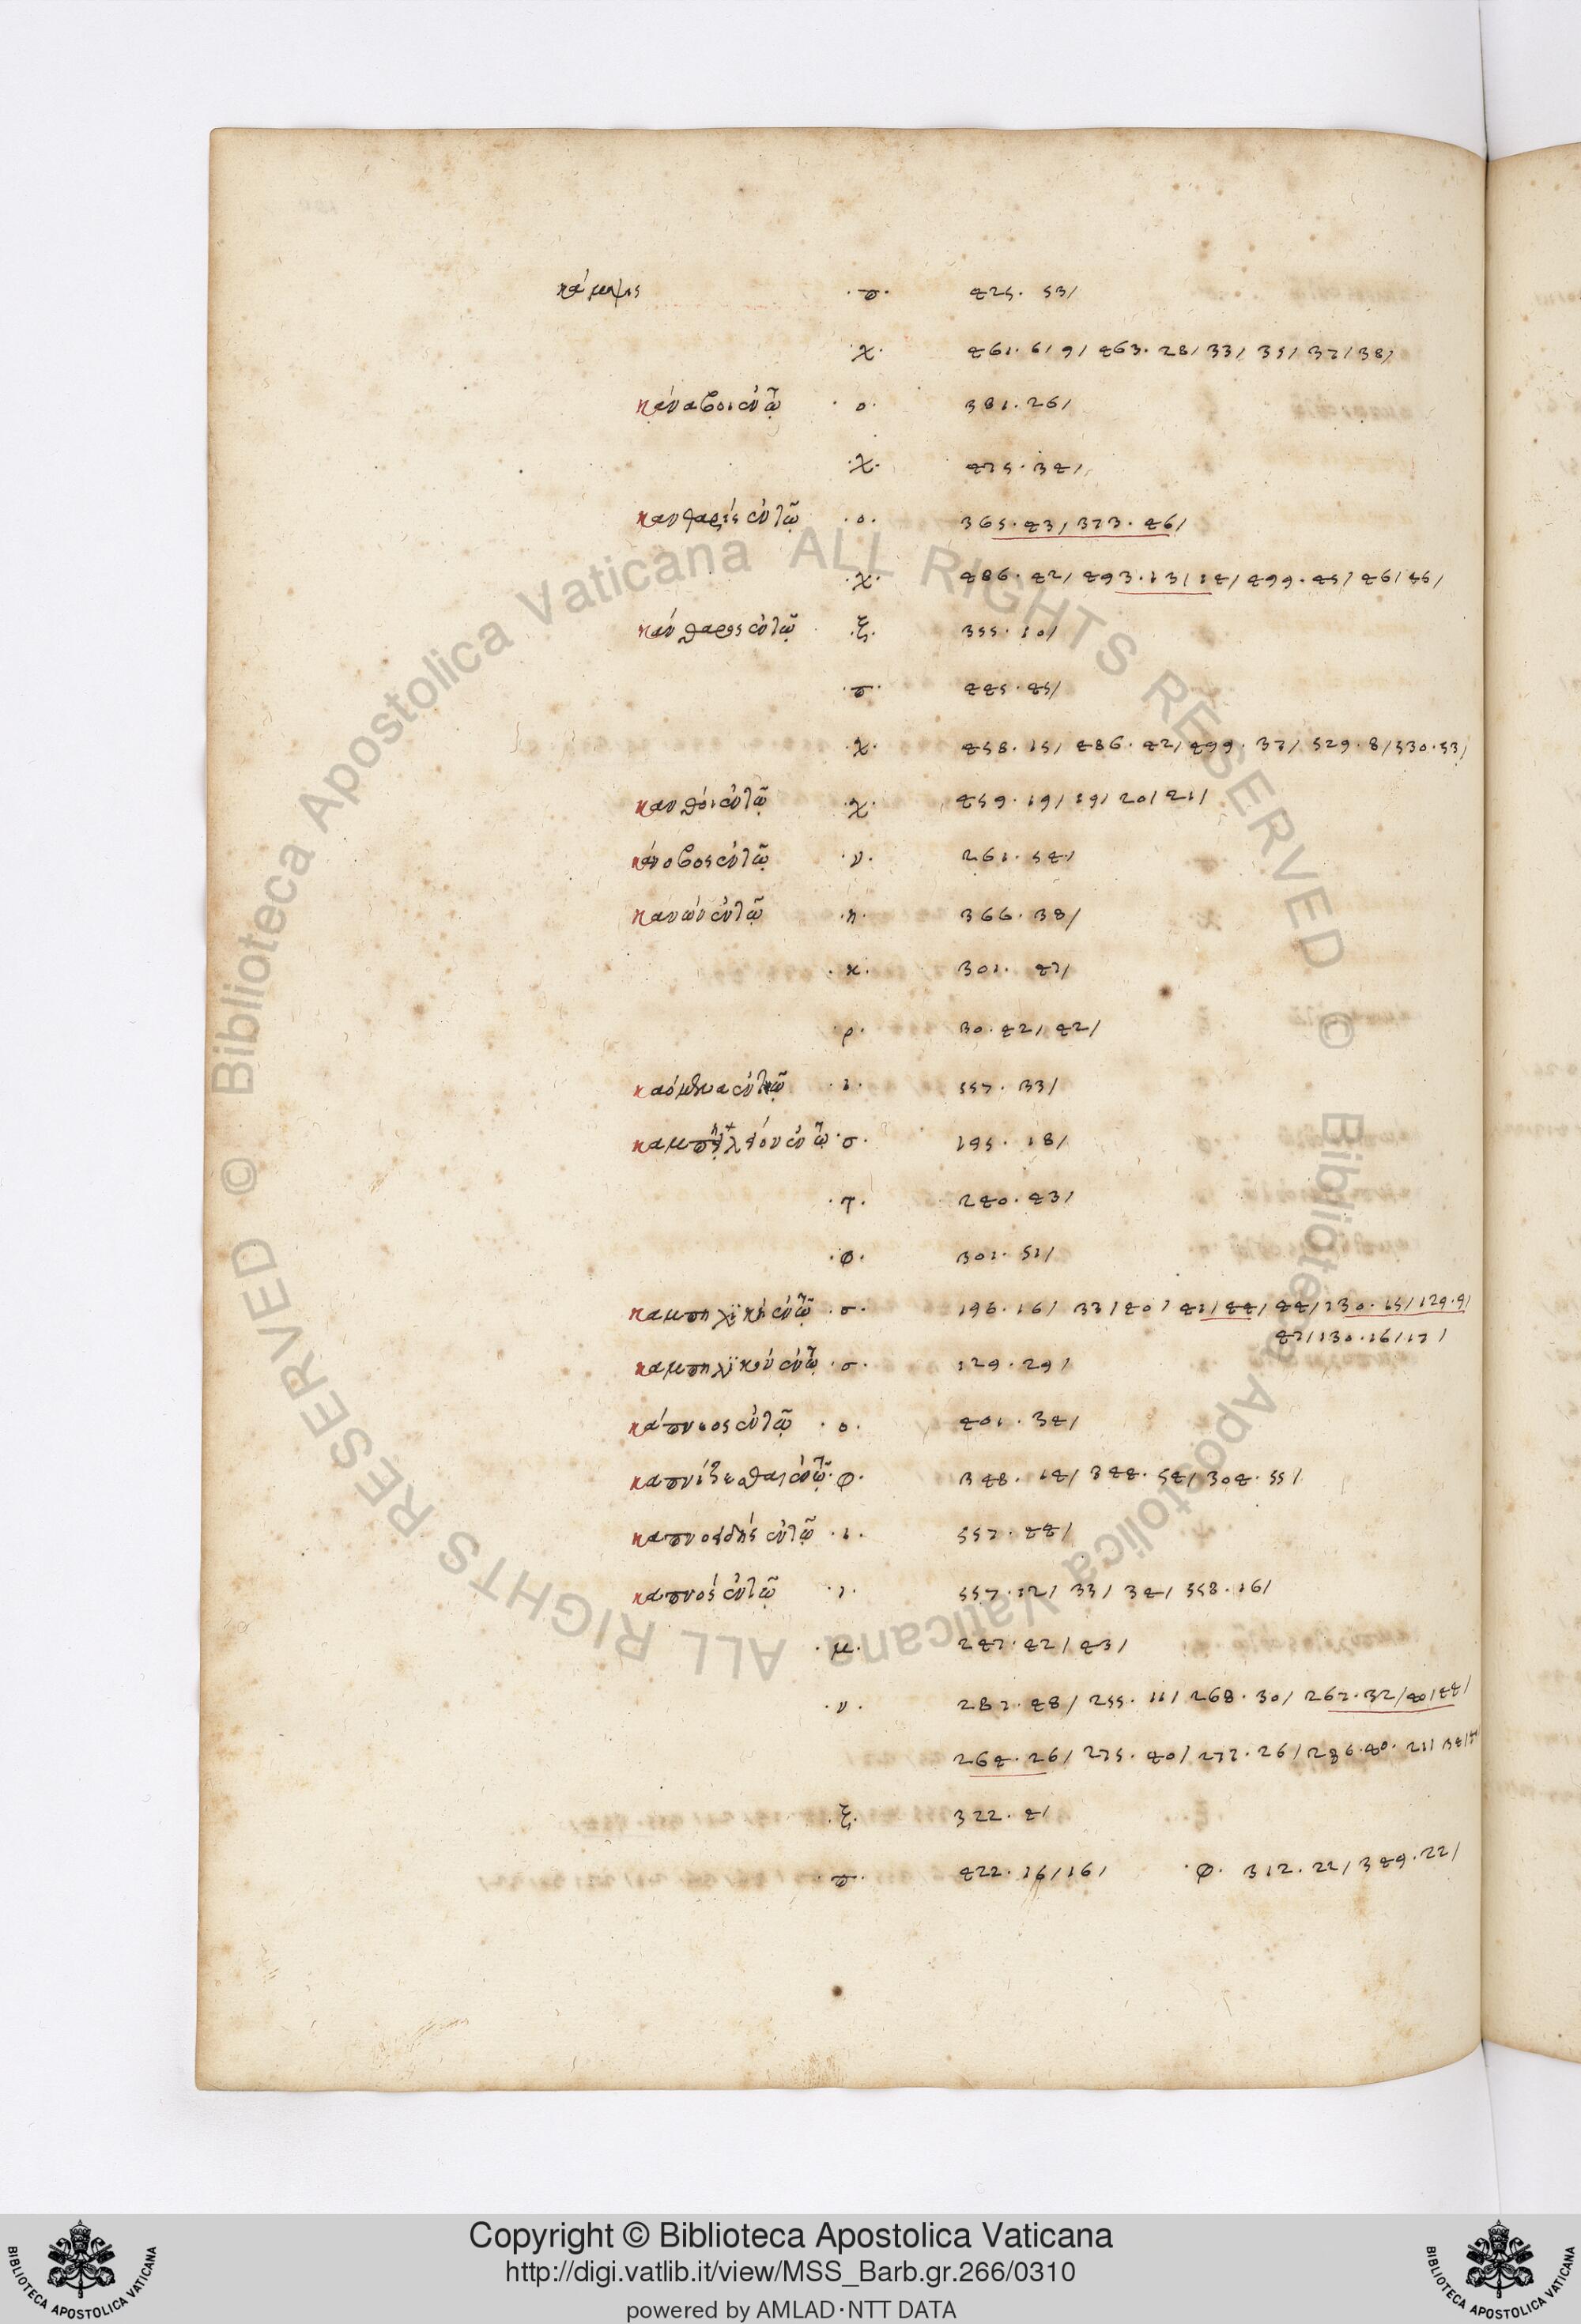 κάμψις ·π· 425. 53/
·χ· 461. 6/ 9/ 463. 28/ 33/ 35/ 37/ 38/
κάναβοι ἐν τῷ ·ο· 381. 26/
·χ· 475. 34/
κανθαρὶς ἐν τῷ ·ο· 365. 43/ 373. 46/
·χ· 486. 42/ 493. 13/ 14/ 499. 45/ 46/ 46/
κάνθαρος ἐν τῷ ·ξ· 355. 10/
·π· 445. 45/
·χ· 458. 15/ 486. 42/ 499. 37/ 529. 8/ 530. 53/
κανθοὶ ἐν τῷ ·χ· 459. 19/ 19/ 20/ 21/
κάνοβος ἐν τῷ ·ν· 261. 54/
κανὼν ἐν τῷ ·η· 366. 38/
·κ· 301. 47/
·ρ· 30. 42/ 42/
ἐν τῷ ·ι· 557. 33/
ἐν τῷ ·σ· 195. 18/
·τ· 240. 43/
·φ· 301. 51/
καπηλικὴ ἐν τῷ ·σ· 196. 16/ 33/ 40/ 41/ 44/ 44/ 130. 15/ 129. 9/
47/ 130. 16/ 17/
καπηλικὸν ἐν τῷ ·σ· 129. 29/
κάπνιος ἐν τῷ ·ο· 401. 34/
καπνίζεσθαι ἐν τῷ ·φ· 348. 14/ 344. 54/ 304. 55/
καπνοειδὴς ἐν τῷ ·ι· 557. 44/
καπνὸς ἐν τῷ ·ι· 557. 12/ 33/ 34/ 558. 16/
·μ· 247. 42/ 43/
·ν· 287. 48/ 255. 11/ 268. 30/ 267. 32/ 40/ 44/
264. 26/ 275. 40/ 277. 26/ 286. 40. 21/ 34/
·ξ· 322. 4/
·π· 422. 16/ 16/ ·φ· 312. 22/ 349. 22/
© Biblioteca Apostolica Vaticana ALL RIGHTS RESERVED © Biblioteca Apostolica Vaticana ALL RIGHTS RESERVED
Copyright © Biblioteca Apostolica Vaticana
http://digi.vatlib.it/view/MSS_Barb.gr.266/0310
powered by AMLAD·NTT DATA
BIBLIOTECA APOSTOLICA VATICANA
BIBLIOTECA APOSTOLICA VATICANA